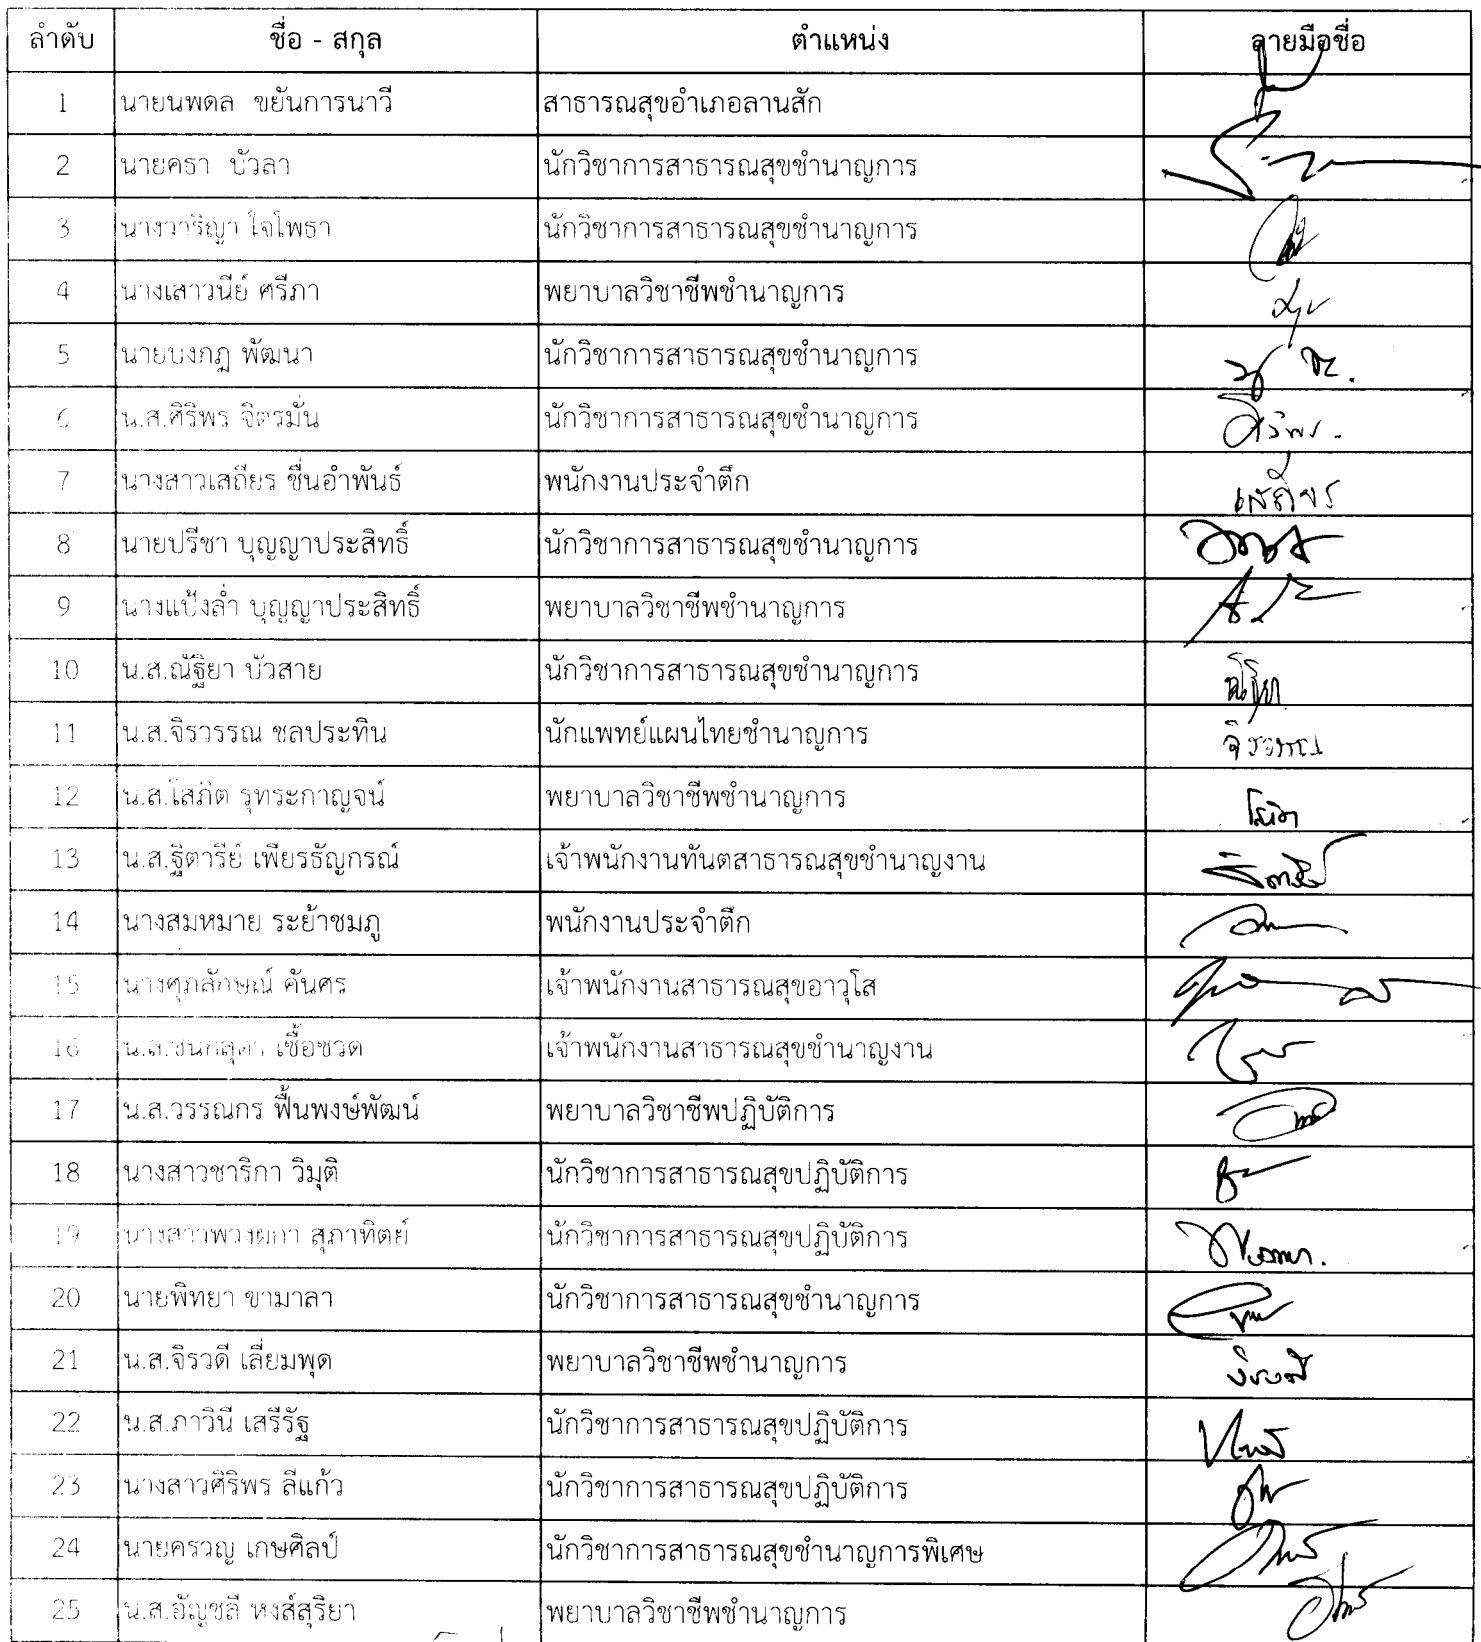 ลำดับ ชื่อ - สกุล ตำแหน่ง ลายมือชื่อ
1 นายนพดล ขยันการนาวี สาธารณสุขอำเภอลานสัก
2 นายครา บัวลา นักวิชาการสาธารณสุขชำนาญการ
3 นางวาริญา ใจโพธา นักวิชาการสาธารณสุขชำนาญการ
4 นางเสาวนีย์ ศรีภา พยาบาลวิชาชีพชำนาญการ
5 นายบงกฎ พัฒนา นักวิชาการสาธารณสุขชำนาญการ
6 น.ส.ศิริพร จิตรมั่น นักวิชาการสาธารณสุขชำนาญการ ศิริพร.
7 นางสาวเสถียร ชื่นอำพันธ์ พนักงานประจำตึก เสถียร
8 นายปรีชา บุญญาประสิทธิ์ นักวิชาการสาธารณสุขชำนาญการ
9 นางแป้งล่ำ บุญญาประสิทธิ์ พยาบาลวิชาชีพชำนาญการ
10 น.ส.ณัฐิยา บัวสาย นักวิชาการสาธารณสุขชำนาญการ ณัฐิยา
11 น.ส.จิรวรรณ ชลประทิน นักแพทย์แผนไทยชำนาญการ จิรวรรณ
12 น.ส.โสภิต รุทระกาญจน์ พยาบาลวิชาชีพชำนาญการ โสภิต
13 น.ส.ฐิตารีย์ เพียรธัญกรณ์ เจ้าพนักงานทันตสาธารณสุขชำนาญงาน ฐิตารีย์
14 นางสมหมาย ระย้าชมภู พนักงานประจำตึก
15 นางศุภลักษณ์ คันศร เจ้าพนักงานสาธารณสุขอาวุโส
16 น.ส.ชนกสุดา เชื้อชวด เจ้าพนักงานสาธารณสุขชำนาญงาน
17 น.ส.วรรณกร ฟื้นพงษ์พัฒน์ พยาบาลวิชาชีพปฏิบัติการ
18 นางสาวชาริกา วิมุติ นักวิชาการสาธารณสุขปฏิบัติการ
19 นางสาวพวงผกา สุภาทิตย์ นักวิชาการสาธารณสุขปฏิบัติการ พวงผกา.
20 นายพิทยา ขามาลา นักวิชาการสาธารณสุขชำนาญการ
21 น.ส.จิรวดี เลี่ยมพุด พยาบาลวิชาชีพชำนาญการ จิรวดี
22 น.ส.ภาวินี เสรีรัฐ นักวิชาการสาธารณสุขปฏิบัติการ
23 นางสาวศิริพร ลีแก้ว นักวิชาการสาธารณสุขปฏิบัติการ
24 นายครวญ เกษศิลป์ นักวิชาการสาธารณสุขชำนาญการพิเศษ
25 น.ส.อัญชลี หงส์สุริยา พยาบาลวิชาชีพชำนาญการ